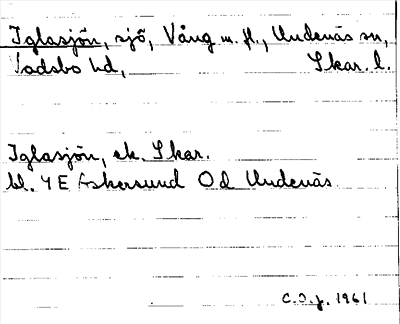 Iglasjön, sjö, Vång m. fl., Undenäs sn,
Vadsbo hd, Skar. l.
Iglasjön, ek. Skar.
bl. 4 E Askersund Od Undenäs.
C.O.J. 1961